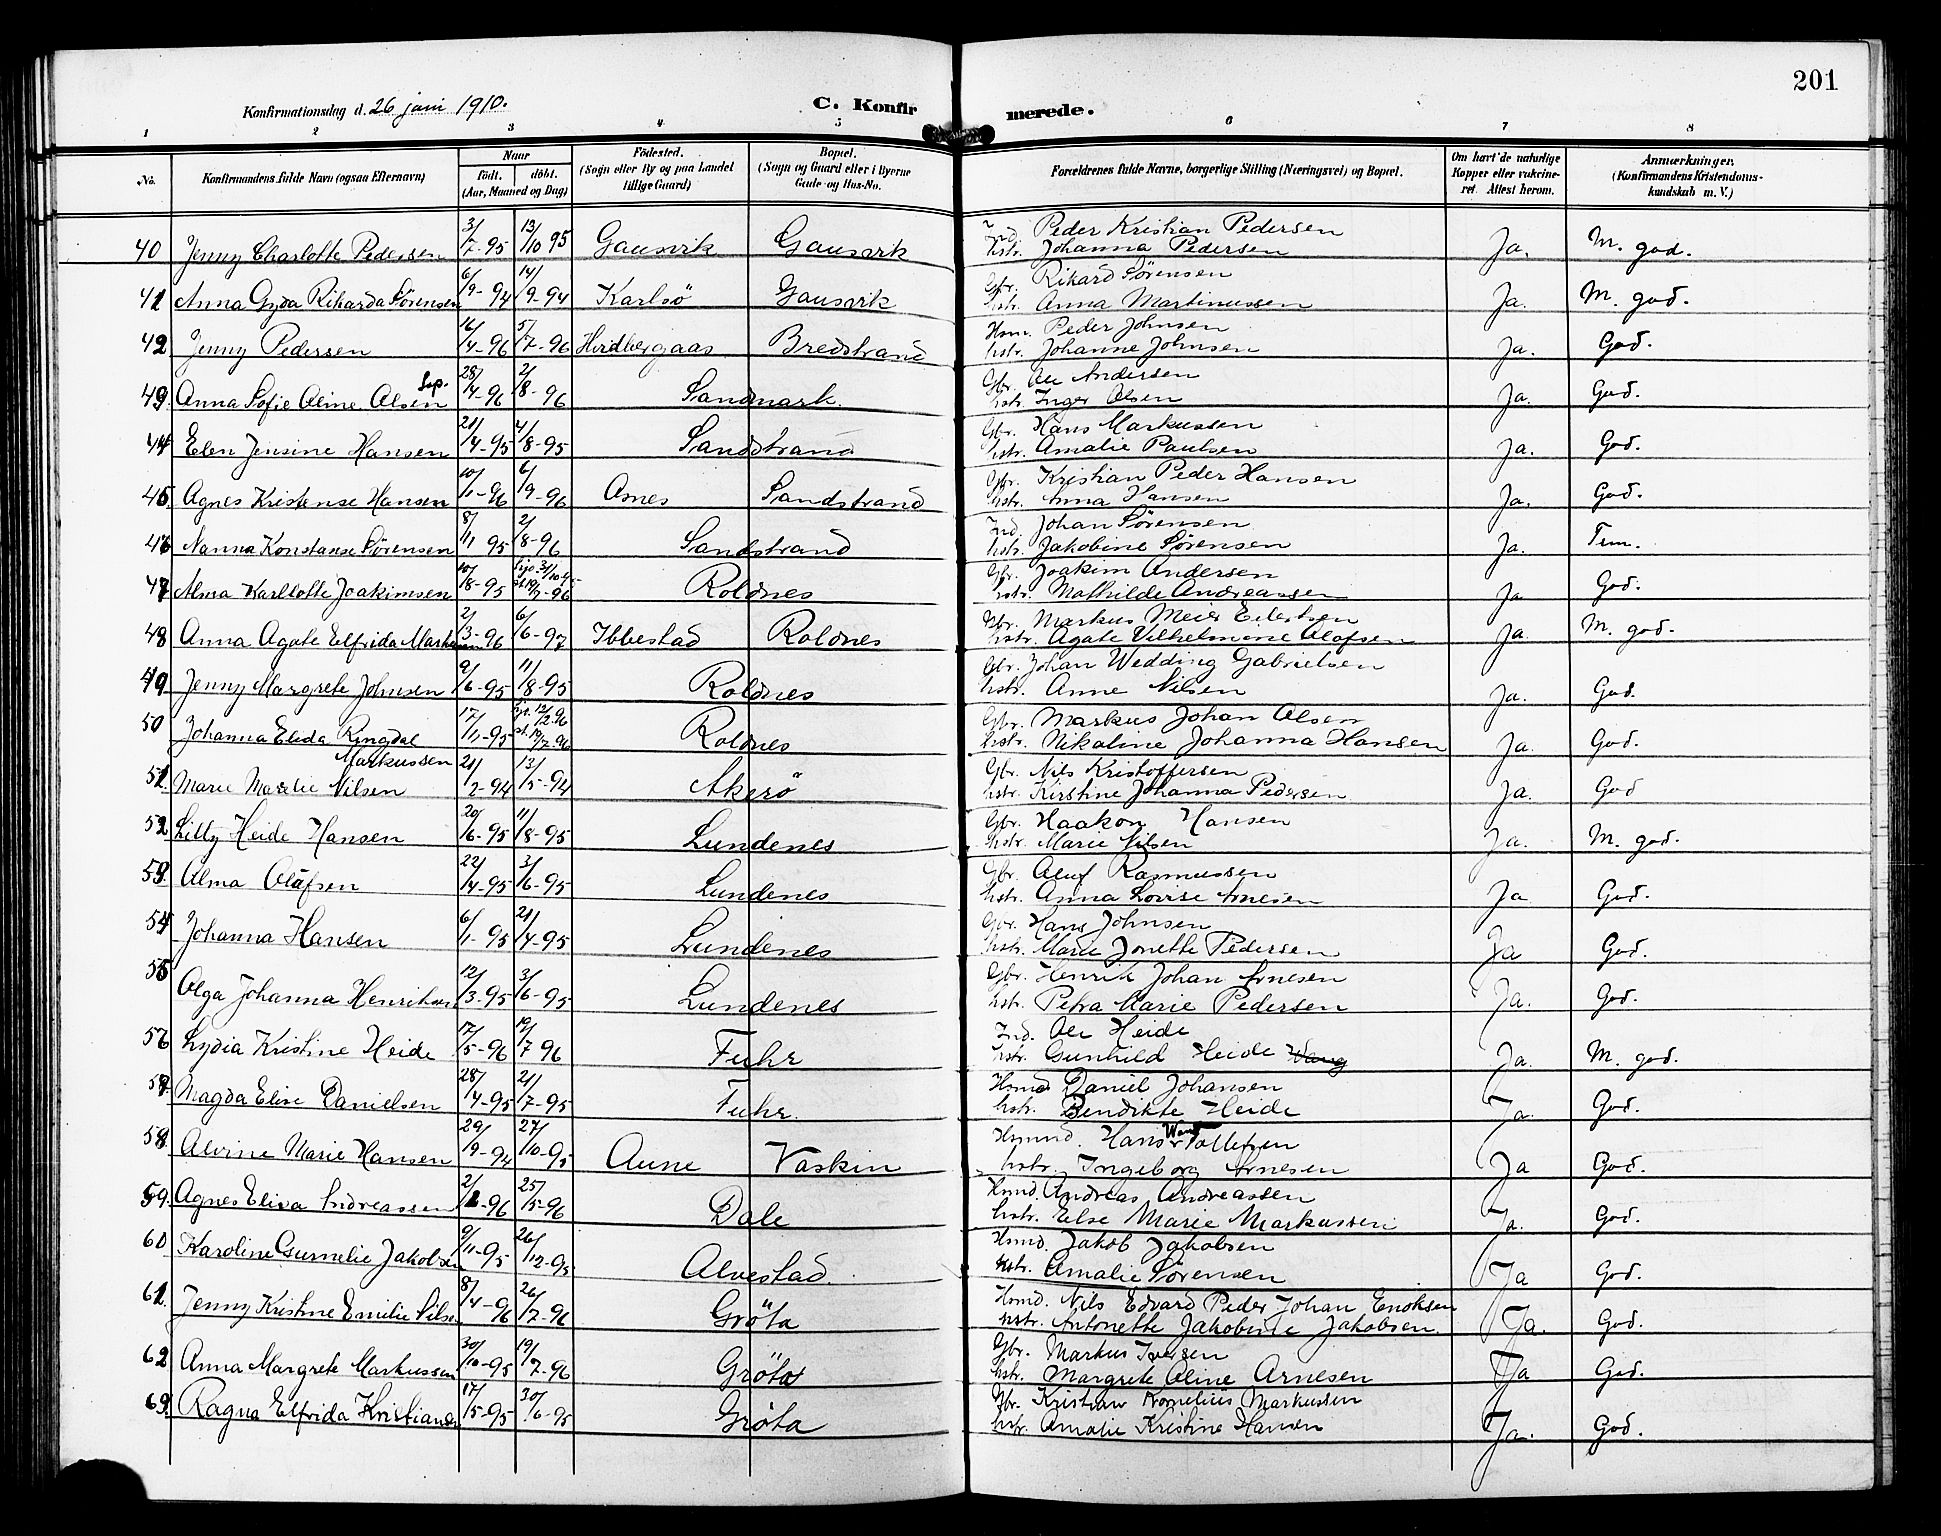 201
Konfirmationsdag d. 26 juni 1910.
C. Konfirmerede.
1 2 3 4 5 6 7 8
No. Konfirmandens fulde Navn (ogsaa Efternavn) Naar født. døbt. (Aar, Maaned og Dag) Födested. (Sogn eller By og paa Landet tillige Gaard) Bopæl. (Sogn og Gaard eller i Byerne Gade- og Hus-No. Forældrenes fulde Navne, borgerlige Stilling (Næringsvei) og Bopæl. Om havt de naturlige Kopper eller vakcineret. Attest herom. Anmærkninger. (Konfirmandens Kristendomskundskab m. V.)
40 Jenny Charlotte Pedersen 3/7-95 13/10 95 Gausvik Gausvik Ind. Peder Kristian Pedersen
hstr. Johanna Pedersen Ja. M. god.
41 Anna Gyda Rikarda Sørensen 6/9-94 14/9-94 Karlsö Gausvik Gbr. Rikard Sørensen
hstr. Anna Martinussen Ja. M. god.
42 Jenny Pedersen 16/4-96 5/7-96 Bredstrand Hsm. Peder Johnsen
hstr. Johanne Johnsen Ja. God.
43 Anna Sofie Aline Olsen Lap. 28/4-96 2/8-96 Sandmark. Gbr. Ole Andersen
hstr. Inger Olsen Ja. God.
44 Elen Jensine Hansen 21/4-95 4/8-95 Sandstrand Gbr. Hans Markussen
hstr. Amalie Paulsen Ja. God.
45. Agnes Kristense Hansen 10/1-96 6/9-96 Aones Sandstrand Gbr. Kristian Peder Hansen
hstr. Anna Hansen Ja. God.
46 Nanna Konstanse Sørensen 8/11 95 2/8-96 Sandstrand Ind. Johan Sørensen
hstr. Jakobine Sørensen Ja. Tem.
47 Alma Karllotte Joakimsen 10/8-95 Hjd. 31/10 95 st. 19/7-96 Roldnes Gbr. Joakim Andersen
hstr. Mathilde Andreassen Ja God.
48 Anna Agate Elfrida Markussen 2/3-96 6/6-97 Ibbestad Roldnes Gbr. Markus Meier Eilertsen
hstr. Agate Vilhelmine Olafsen Ja. M. god.
49 Jenny Margrete Johnsen 9/6-95 11/8-95 Roldnes Gbr. Johan Wedding Gabrielsen
hstr. Anne Nilsen Ja. God.
50 Johanna Elida Ringdal Markussen 17/11-95 Hjd. 12/2-96 st. 19/7-96 Roldnes Gbr. Markus Johan Olsen
hstr. Nikoline Johanna Hansen Ja. God.
51 Marie Maalie Nilsen 21/2-94 13/5-94 Akerö Gbr. Nils Kristoffersen
hstr. Kirstine Johanna Pedersen Ja. God
52 Lilly Heide Hansen 20/6-95 11/8-95 Lundenes Gbr. Haakon Hansen
hstr. Marie Nilsen Ja. M. god.
53. Alma Olafsen 22/4-95 3/6-95 Lundenes Gbr. Oluf Rasmussen
hstr. Anna Lovise Arnesen Ja God.
54 Johanna Hansen 6/1-95 21/4-95 Lundenes Gbr. Hans Johnsen
hstr. Marie Jonette Pedersen Ja God.
55 Olga Johanna Henriksen 12/3-95 3/6-95 Lundenes Gbr. Henrik Johan Arnesen
hstr. Petra Marie Pedersen Ja. God.
56 Lydia Kristine Heide 17/5-96 19/7 96 Fuhr Ind. Ole Heide
hstr. Gunhild Heide Wang Ja. M. god.
57. Magda Elise Danielsen 28/4-95 21/7-95 Fuhr. Hsmd Daniel Johansen
hstr. Bendikte Heide Ja. God.
58. Alvine Marie Hansen 29/9-94 27/10-95 Aune Vaskin Hsmd. Hans Wang Tollefsen
hstr. Ingeborg Arnesen Ja God.
59. Agnes Elisa Andreassen 2/2-96 25/5-96 Dale Hsmd. Andreas Andreassen
hstr. Else Marie Markussen Ja. God.
60 Karoline Gurnelie Jakobsen 9/11-95 26/12-95 Alvestad. Hsmd. Jakob Jakobsen
hstr. Amalie Sørensen Ja God.
61. Jenny Kristine Emilie Nilsen 8/4-96 26/7-96 Gröta Hsmd. Nils Edvard Peder Johan Enoksen
hstr. Antonette Jakobine Jakobsen. Ja. God.
62 Anna Margrete Markussen 30/10-95 19/7-96 Gröta Gbr. Markus Iversen
hstr. Margrete Oline Arnesen Ja God.
63. Ragna Elfrida Kristiansen 17/5-95 30/6-95 Gröta Gbr. Kristian Kornelius Markussen
hstr. Amalie Kristine Hansen Ja. God.